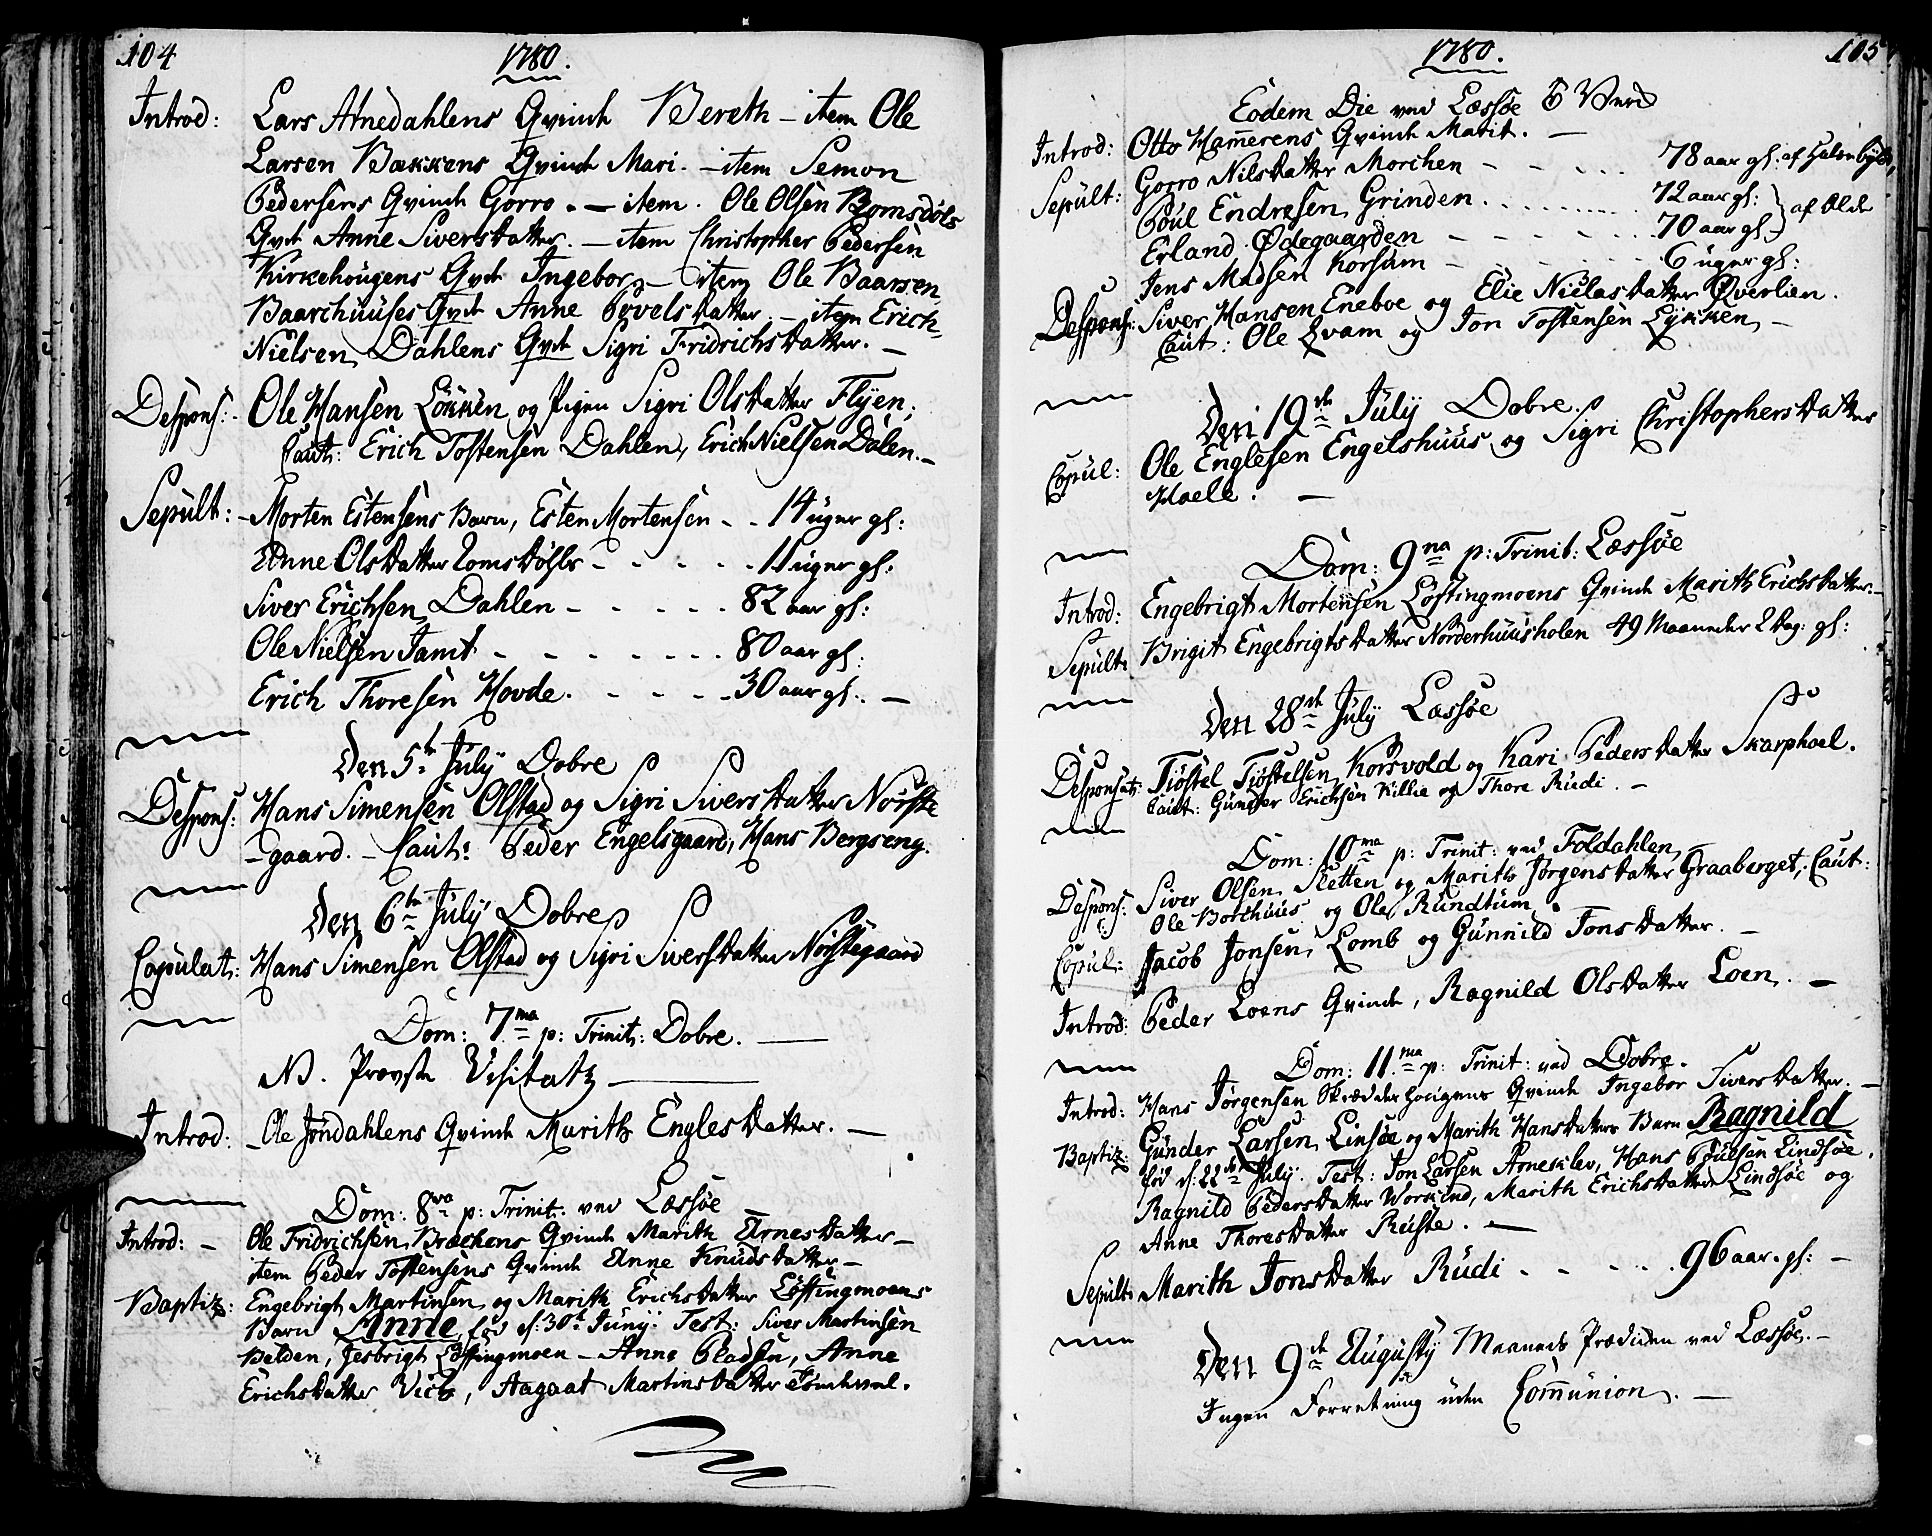 104
1780.
Introd: Lars Atnedahlens Qvinde Bereth - item Ole
Larsen Bækkens Qvinde Mari. - item Semon
Pedersens Qvinde Gorro. - item. Ole Olsen Romsdøls
Qvd Anne Siversdatter. - item Christopher Pedersen
Kirkehougens Qvd Ingebor - item Ole Baarsen
Baarchuuses Qvd Anne Povelsdatter. - item Erich
Nielsen Dahlens Qvd Sigri Fridrichsdatter. -
Despons: Ole Hansen Løkken og Pigen Sigri Olsdatter Flyen;
Caut: Erich Tostensen Dahlen, Erich Nielsen Dalen. -
Sepult: - Morten Estensens Barn, Esten Mortensen - - 14 uger gl:
Anne Olsdatter - - - - - 11 uger gl:
Siver Erichsen Dahlen - - - - - 82 aar gl:
Ole Nielsen Jamt - - - - - - - 80 aar gl:
Erich Thoresen Hovde. - - - - 30 aar gl: -
Den 5te July Dobre
Despons: Hans Simensen Olstad og Sigri Siversdatter Nørste
-gaard. - Caut: Peder Engelsgaard, Hans Bergseng.
Den 6te July Dobre
Copulat: Hans Simensen Olstad og Sigri Siversdatter Nørstegaard
Dom: 7ma p: Trinit: Dobre. -
NB. Provste Visitatz -
Introd: - Ole Jondahlens Qvinde Marith Englesdatter. -
Dom: 8va p: Trinit: ved Læssøe
Introd: - Ole Fridrichsen Brækens Qvinde Marith Arnesdatter -
item Peder Tostensens Qvinde Anne Knudsdatter -
Baptiz: Engebrigt Martinsen og Marith Erichsdatter Løftingmoens
Barn Anne, fød d: 30te Juny. Test: Siver Martinsen
Belden, Jesbrigt Løftingmoen - Anne, Anne
Erichsdatter Vick, Aagaat Martinsdatter.
1780.
105
Eodem Die ved Læssøe
Introd: Otto Hamerens Qvinde Marit. -
Sepult: Gorro Nilsdatter Morchen - - - - 78 aar gl: af
Poul Endresen Grinden - - - - 72 aar gl: } af Ælde
Erland Ødegaarden - - - - - 70 aar gl:
Jens Madsen Korsum - - - - 6 uger gl:
Despons: Siver Hansen Eneboe og Elie Nielasdatter Øverlien.
Caut: Ole Qvam og Jon Tostensen Lykken -
Den 19de July Dobre.
Copul: Ole Englesen Engelshuus og Sigri Christophersdatter
Haele. -
Dom: 9na p: Trinit: Læssøe
Introd: Engebrigt Mortensen Løftingmoens Qvinde Marith Erichsdatter. -
Sepult: Brigit Engebrigtsdatter Norderhuusholen 49 Maaneder 2 Dag: gl:
Den 28de July Læssøe
Desponsat: Tiøstel Tiøstelsen Korsvold og Kari Pedersdatter Skarphoel.
Caut: Gunder Erichsen Killie og Thore Rudi. -
Dom: 10ma p: Trinit: ved Foldahlen.
Despons: Siver Olsen Sletten og Marith Jørgensdatter Graaberget, Caut:
Ole Borchuus og Ole Rundtum.
Copul: Jacob Jonsen Lomb og Gunnild Jonsdatter. -
Introd: Peder Loens Qvinde, Ragnild Olsdatter Loen. -
Dom: 11ma p: Trinit: ved Dobre.
Introd: Hans Jørgensen Skrædderhougens Qvinde Ingebor Siversdatter. -
Baptiz: Gunder Larsen Linsøe og Marith Hansdatters Barn Ragnild
fød d: 22de July. Test: Jon Larsen Arneklev, Hans Poulsen Lindsøe.
Ragnild Pedersdatter Workind, Marith Erichsdatter Lindsøe og
Anne Thoresdatter Ruste. -
Sepult: Marith Jonsdatter Rudi - - - - - 96 aar. gl: -
Den 9de Augusty Maaneds Prædiken ved Læssøe. -
Ingen Forretning uden Communion. -